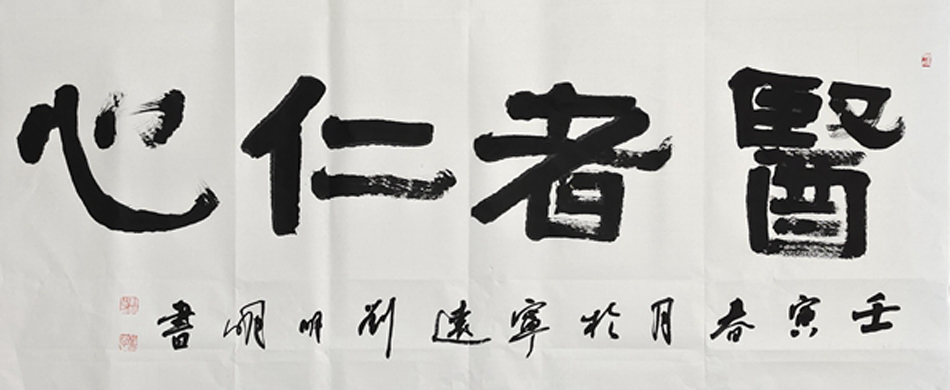 醫者仁心
壬寅春月於寧遠劉明明書